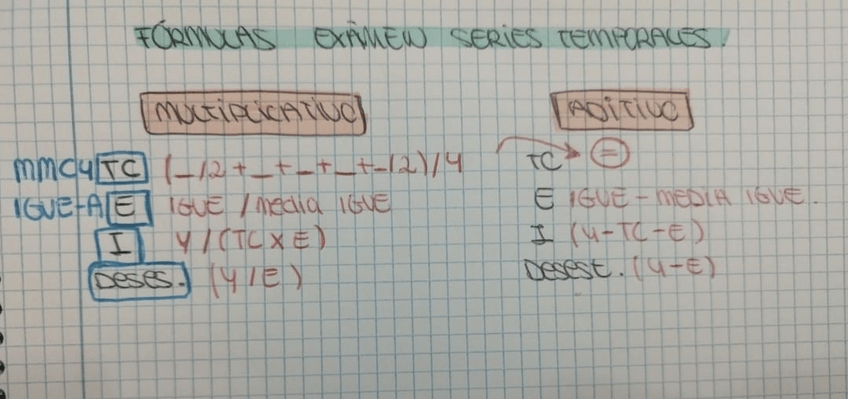 FÓRMULAS EXÁMEN SERIES TEMPORALES.
MULTIPLICATIVO
MMC4 TC (_/2+_+_+_+_/2)/4
IGVE-A E IGVE/media IGVE
I Y/(TCXE)
DESES. (Y/E)
ADITIVO
TC =
E IGVE-MEDIA IGVE.
I (Y-TC-E)
Desest. (Y-E)